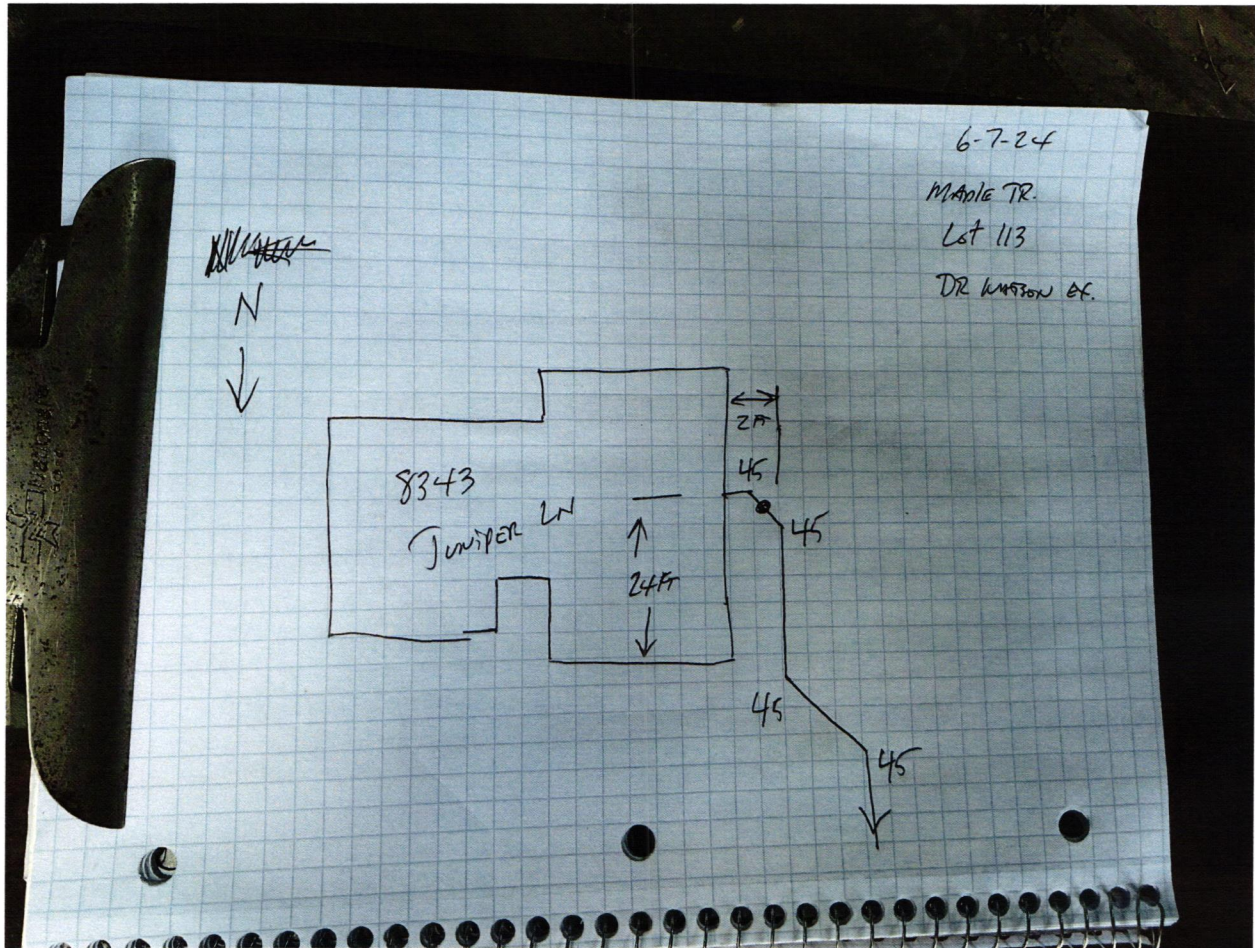 6-7-24
MAPLE TR.
Lot 113
DR WATSON EX.
N
2FT
8343
JUNIPER LN
45
45
24FT
45
45